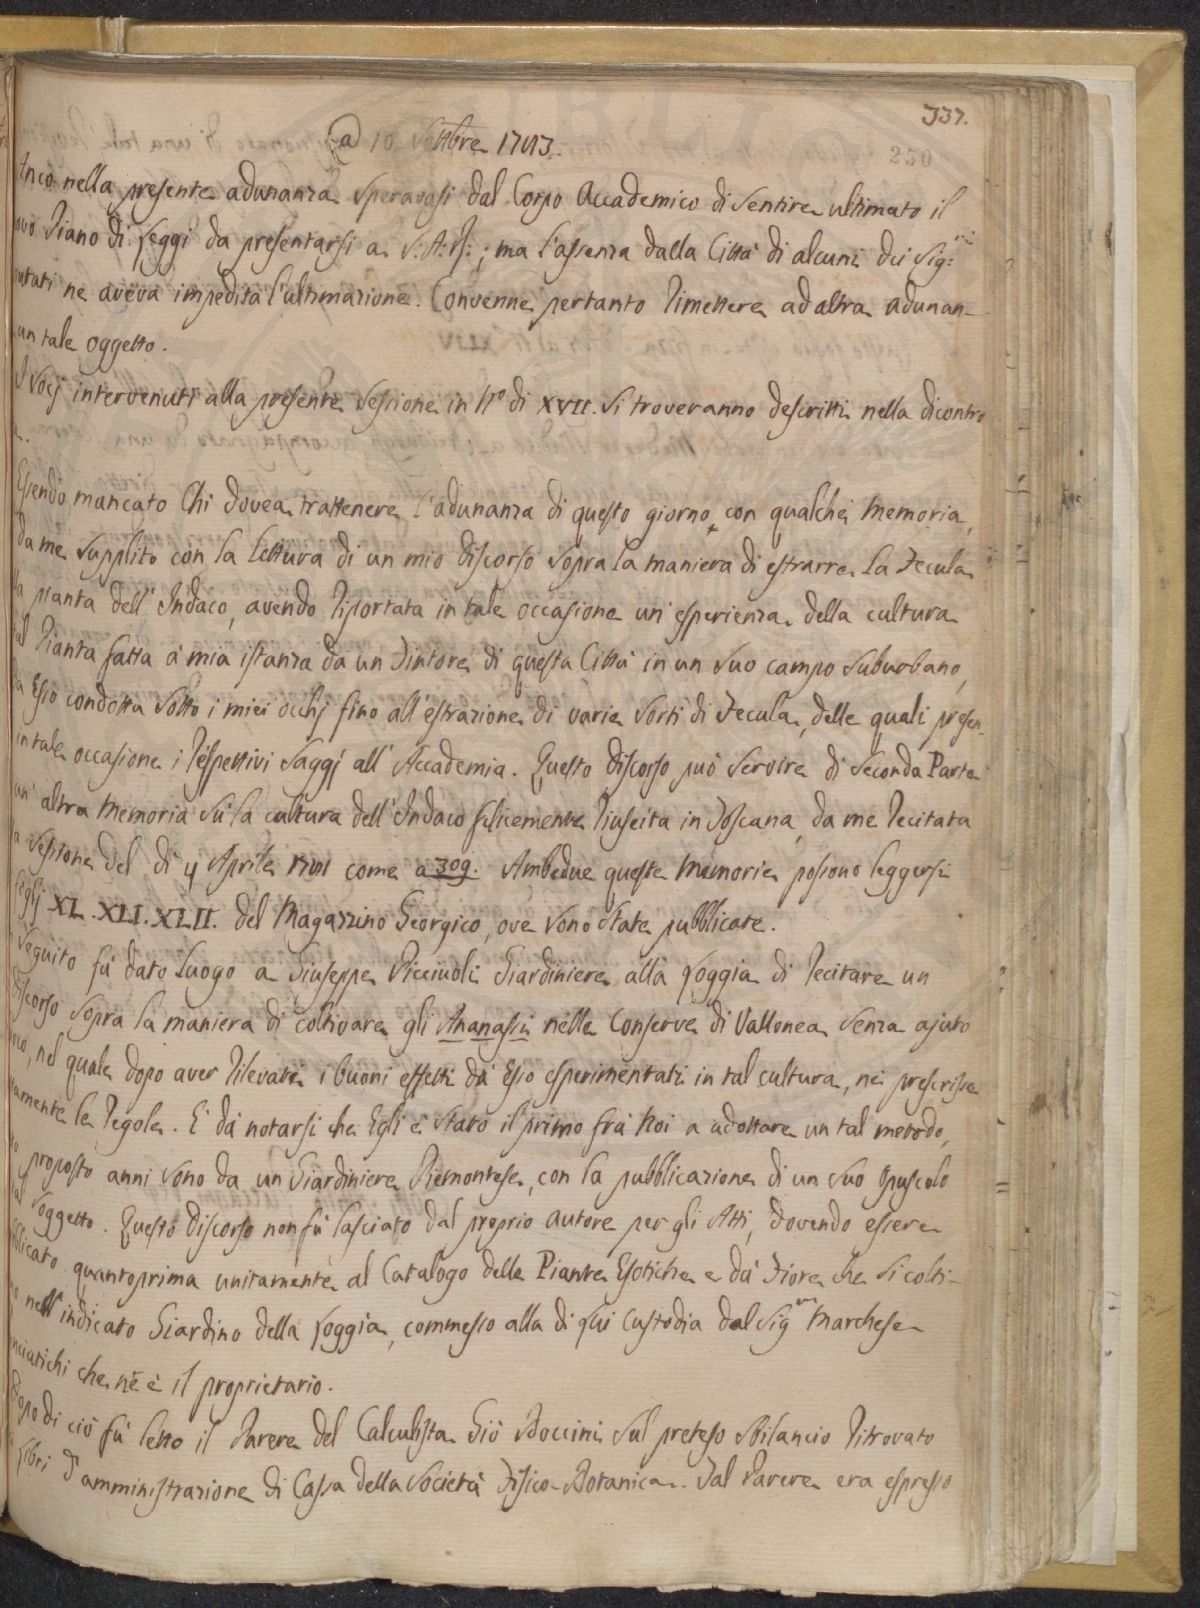 337.
250
a 10 Settbre 1783.
Anco nella presente adunanza speravasi dal Corpo Accademico di sentire ultimato il
ovo Piano di Leggi da presentarsi a S: A: R: ; ma l'assenza dalla Città di alcuni dei Sig:ri
putati ne aveva impedita l'ultimazione. Convenne pertanto rimettere ad altra adunan-
un tale oggetto.
I Socj intervenuti alla presente sessione in No di XVII. si troveranno descritti nella dicontro
a.
Essendo mancato Chi dovea trattenere l'adunanza di questo giorno con qualche Memoria,
da me supplito con la lettura di un mio discorso sopra la maniera di estrarre la Fecula
la pianta dell' Indaco, avendo riportata in tale occasione un' esperienza della cultura
tal Pianta fatta a mia istanza da un Tintore di questa Città in un suo campo suburbano,
da Esso condotta sotto i miei occhj fino all' estrazione di varie sorti di Fecula, delle quali presen-
in tale occasione i respettivi saggj all' Accademia. Questo discorso può servire di Seconda Parte
un' altra Memoria sù la cultura dell' Indaco felicemente riuscita in Toscana, da me recitata
a sessione del dì 4 Aprile come a 309. Ambedue queste Memorie possono leggersi
fogli XL. XLI. XLII. del Magazzino Georgico, ove sono state pubblicate.
seguito fù dato luogo a Giuseppe Piccivoli Giardiniere alla Loggia di recitare un
discorso sopra la maniera di coltivare gli Ananassi nelle Conserve di Vallonea senza ajuto
oco, nel quale dopo aver rilevati i buoni effetti da Esso esperimentati in tal cultura, ne prescrisse
tamente le regole. È da notarsi che Egli è stato il primo fra Noi a adottare un tal metodo,
to proposto anni sono da un Giardiniere Piemontese, con la pubblicazione di un suo Opuscolo
tal soggetto. Questo discorso non fù lasciato dal proprio Autore per gli Atti, dovendo essere
bblicato quantoprima unitamente al Catalogo delle Piante Esotiche e da Fiore che si colti-
no nell' indicato Giardino della Loggia, commesso alla di Lui Custodia dal Sig:re Marchese
nciatichi che ne è il proprietario.
Dopo di ciò fù letto il Parere del Calculista Gio Boccini sul preteso sbilancio ritrovato
Libri d'amministrazione di Cassa della Società Fisico-Botanica. Tal Parere era espresso